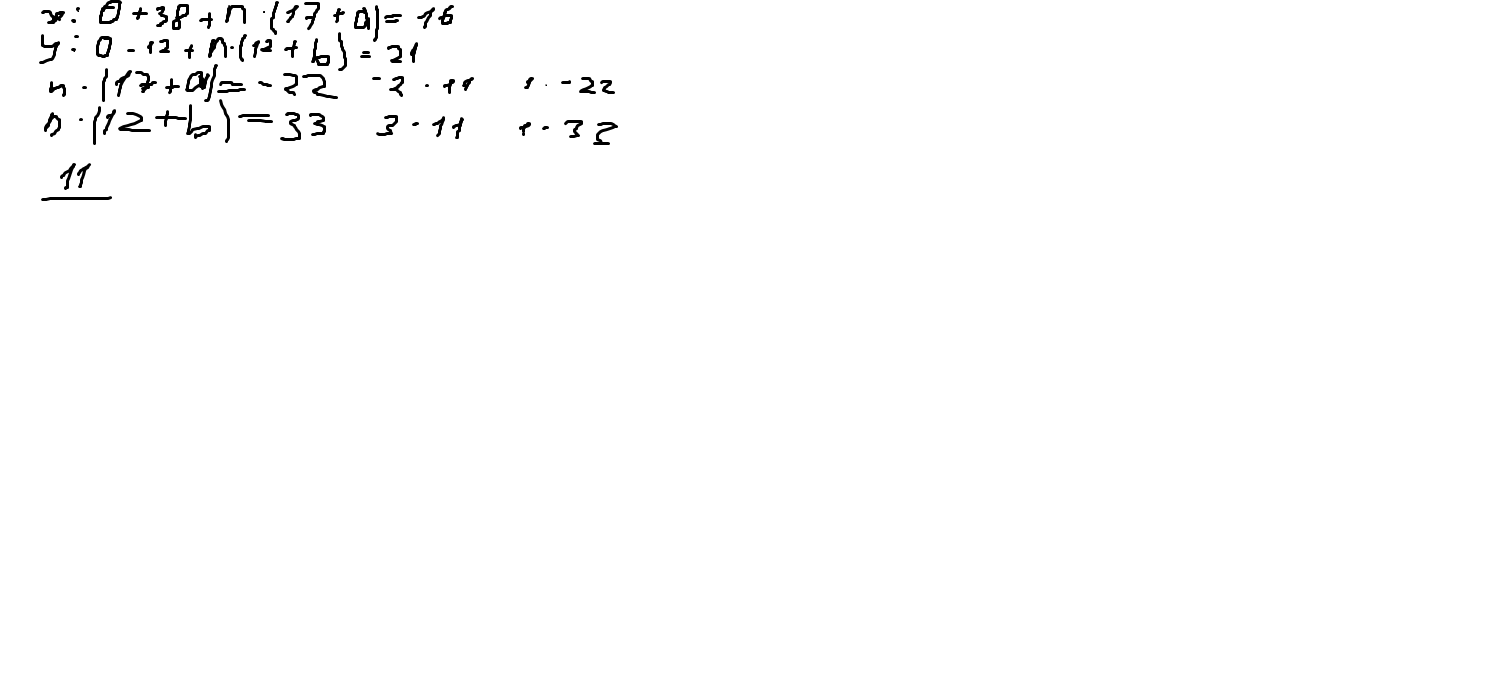 x: 0 + 38 + n · (17 + a) = 16
y: 0 - 12 + n · (12 + b) = 21
n · (17 + a) = - 22 -2 · 11 1 · -22
n · (12 + b) = 33 3 · 11 1 · 33
11